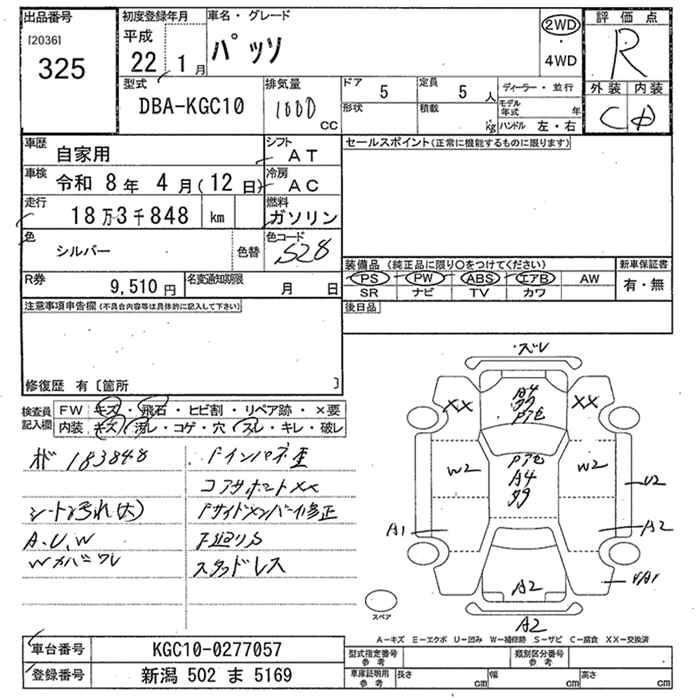 出品番号
[2036]
325
初度登録年月
平成
22 1月
車名・グレード
パッソ
2WD
・
4WD
評価点
R
外装 内装
C D
型式
DBA-KGC10
排気量
1000
CC
ドア 5
定員 5人
形状
積載 kg
ディーラー・並行
モデル年式 年
ハンドル 左・右
車歴
自家用
シフト
AT
セールスポイント(正常に機能するものに限ります)
車検
令和 8年 4月(12日)
冷房
AC
走行
18万3千848 km
燃料
ガソリン
色
シルバー
色替
色コード
S28
装備品(純正品に限り○をつけてください)
新車保証書
PS PW ABS エアB AW
SR ナビ TV カワ
有・無
R券
9,510円
名変通知期限
月 日
注意事項申告欄(不具合内容等は具体的に記入して下さい)
後日品
修復歴 有〔箇所 〕
検査員
記入欄
FW キズ・飛石・ヒビ割・リペア跡・×要
内装 キズ・汚レ・コゲ・穴・スレ・キレ・破レ
183848
ドインパネ歪
コアサポートXX
シート汚れ(大)
Fサイドメンバーイ修正
A.U.W
下廻りS
Wカバーワレ
スタッドレス
・ズレ
XX
A4
XX
W2
A4
W2
U2
A1
A2
A2
A1
スペア
A2
A-キズ E-エクボ U-凹み W-補修跡 S-サビ C-腐食 XX-交換済
車台番号
KGC10-0277057
登録番号
新潟 502 ま 5169
型式指定番号
参考
類別区分番号
参考
車庫証明用
参考
長さ cm
幅 cm
高さ cm